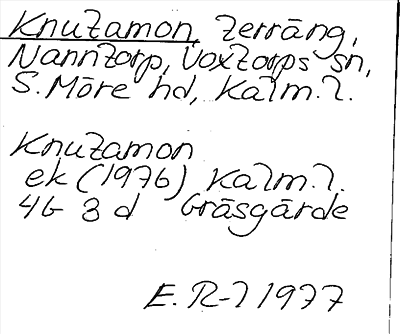 Knutamon, terräng,
Nanntorp, Voxtorps sn,
S. Möre hd, Kalm. l.
Knutamon
ek (1976) Kalm. l.
4G 3 d Gräsgärde
E. R-l 1977